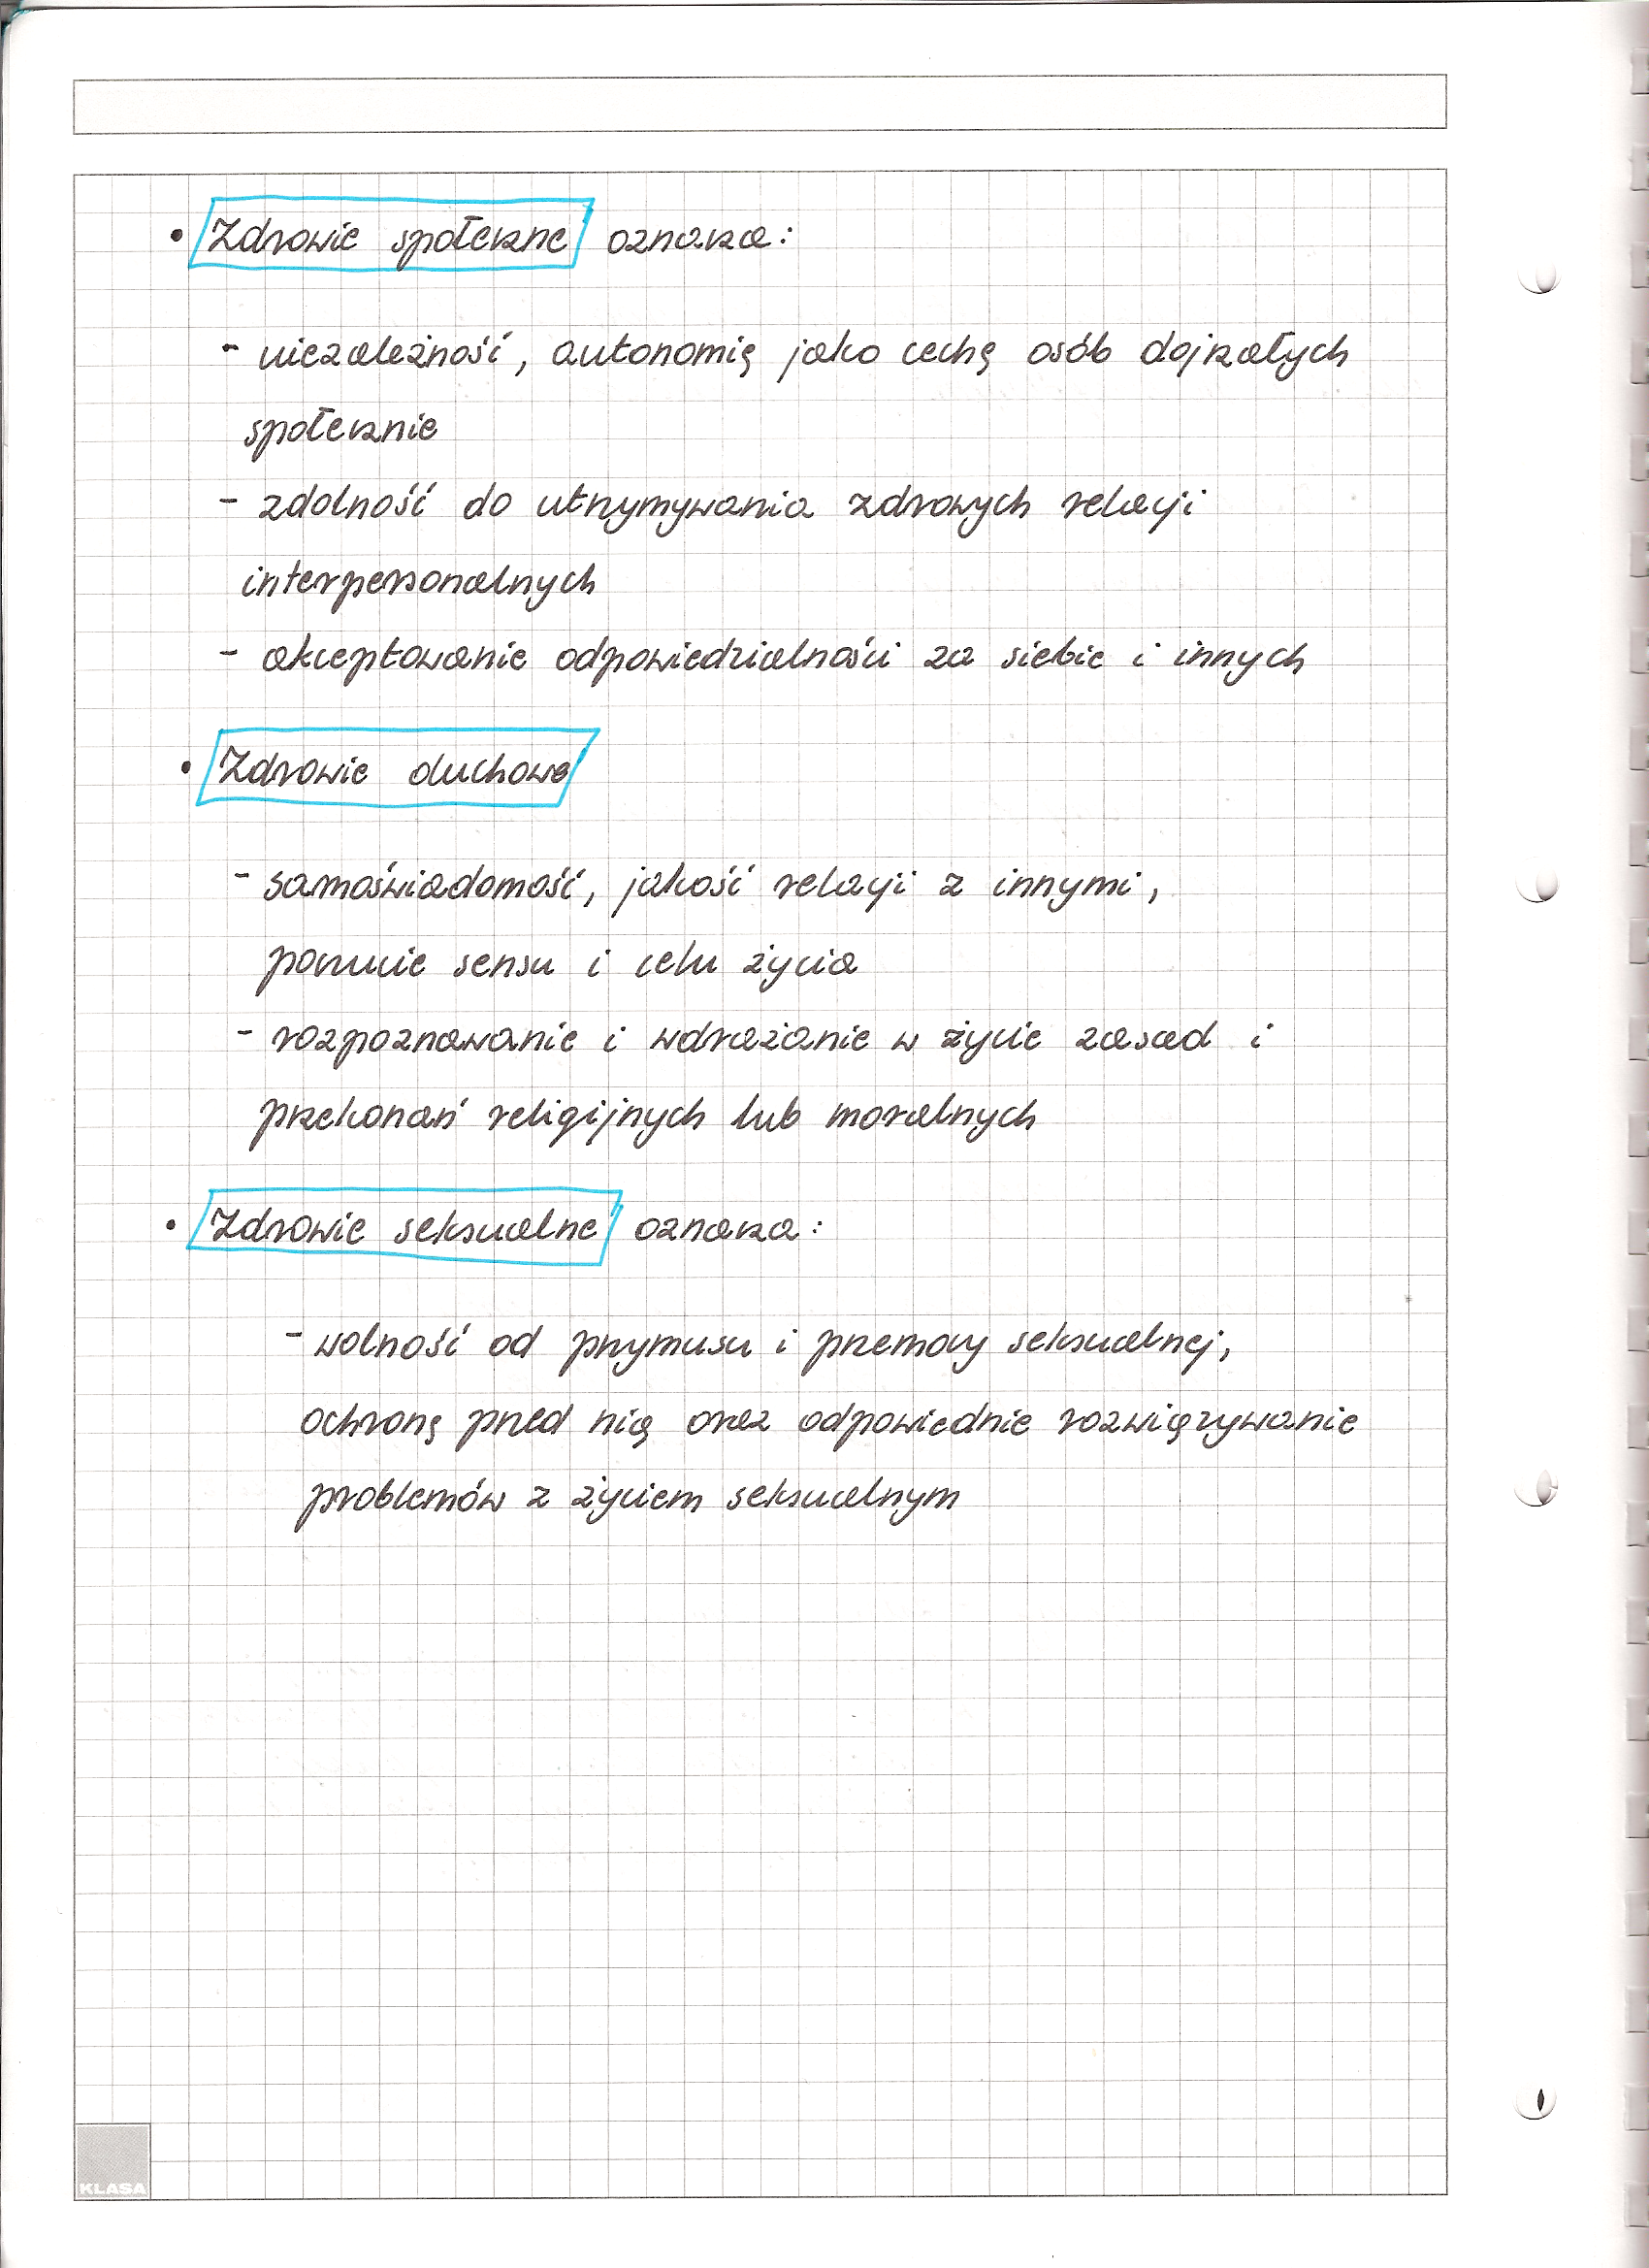 • Zdrowie społeczne oznacza:
- niezależność, autonomię jako cechę osób dojrzałych
społecznie
- zdolność do utrzymywania zdrowych relacji
interpersonalnych
- akceptowanie odpowiedzialności za siebie i innych
• Zdrowie duchowe
- samoświadomość, jakość relacji z innymi,
poczucie sensu i celu życia
- rozpoznawanie i wdrażanie w życie zasad i
przekonań religijnych lub moralnych
• Zdrowie seksualne oznacza:
- wolność od przymusu i przemocy seksualnej,
ochronę przed nią oraz odpowiednie rozwiązywanie
problemów z życiem seksualnym
KLASA